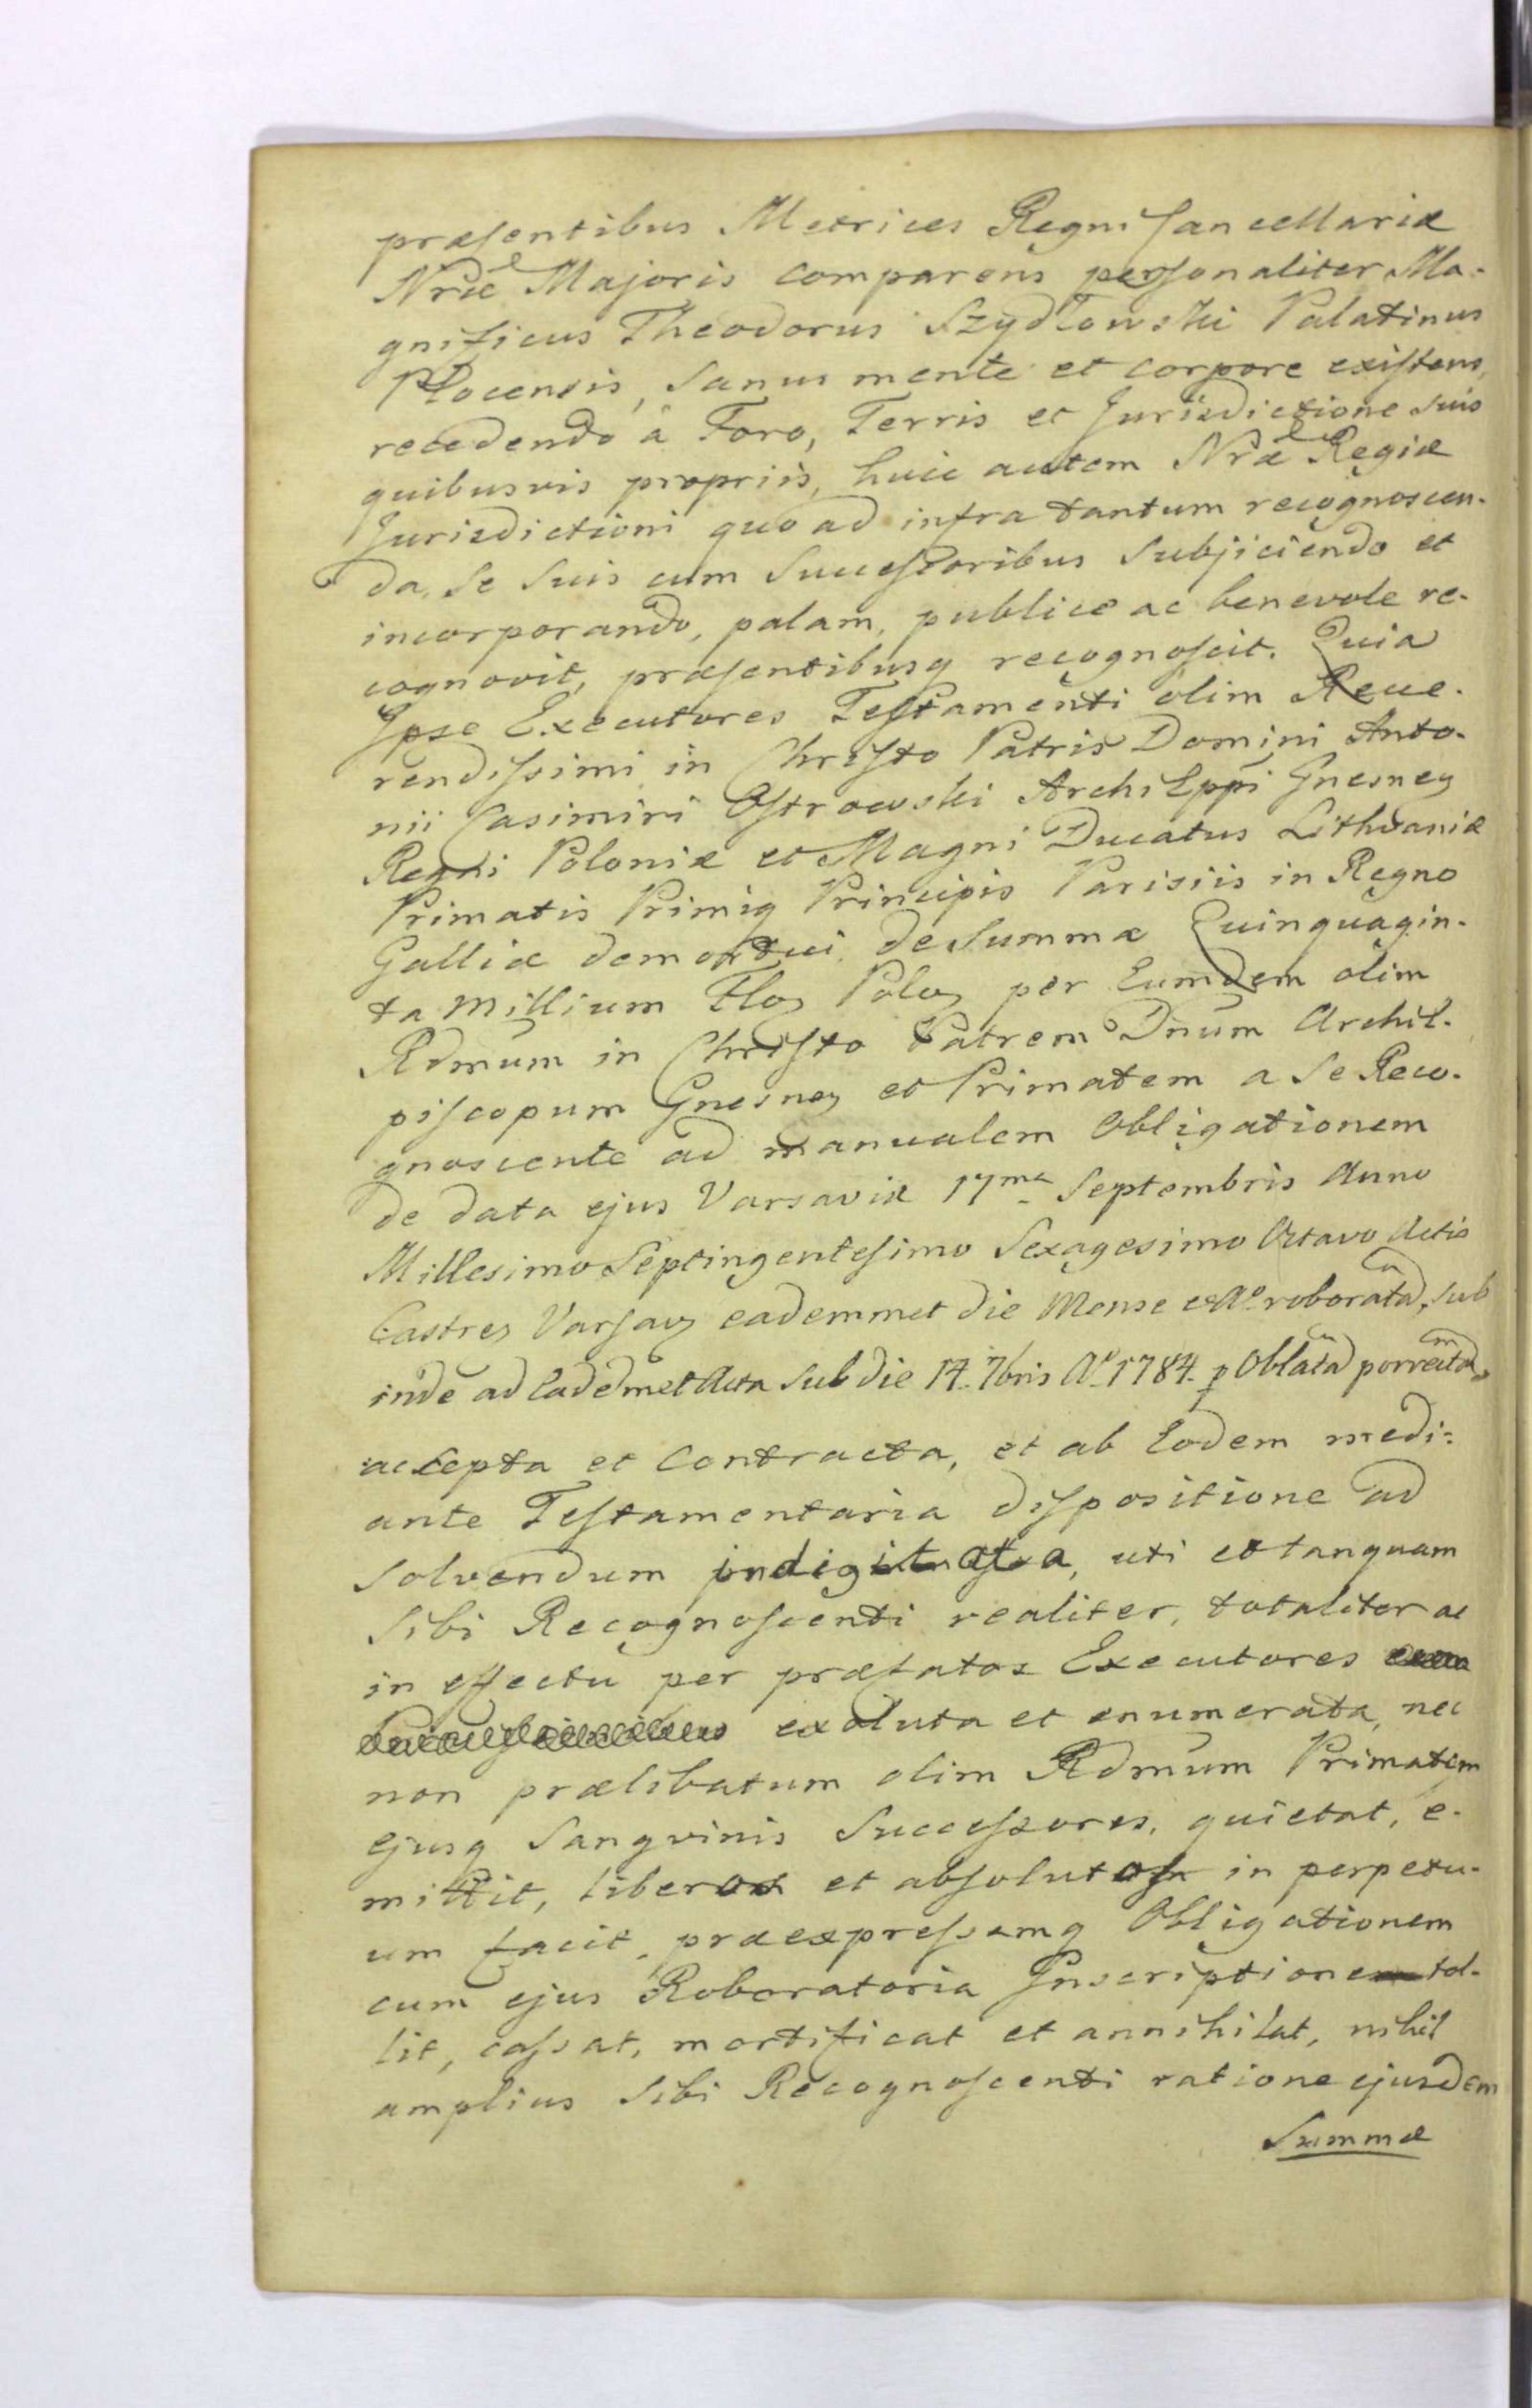 præsentibus Metrices Regni Cancellariæ
Nræ Majoris comparens personaliter Ma-
gnificus Theodorus Szydłowski Palatinus
Plocensis, sanus mente et corpore existens,
recedendo à Foro, Terris et Jurisdictione suis
quibusvis propriis, huic autem Nræ Regiæ
Jurisdictioni quo ad infra tantum recognoscen-
da, se suis cum Successoribus subjiciendo et
incorporando, palam, publice ac benevole re-
cognovit, præsentibusq recognoscit. Quia
Ipse Executores Testamenti olim Reve-
rendissimi in Christo Patris Domini Anto-
nii Casimiri Ostrowski ArchiEppi Gnesney
Regni Poloniæ et Magni Ducatus Lithvaniæ
Primatis Primiq Principis Parisiis in Regno
Galliæ demortui, de Summa Quinquagin-
ta Millium Floz Poloz per Eumdem olim
Rdmum in Christo Patrem Dnum Archie-
piscopum Gnesnez et Primatem a se Reco-
gnoscente ad manualem Obligationem
de data ejus Varsaviæ 17ma Septembris Anno
Millesimo Septingentesimo Sexagesimo Octavo Actis
Castrez Varsavz eademmet die Mense et Ao roborata, sub
inde ad Eademet Acta sub die 14. 7bris Ao 1784. p Oblatã porrectam,
accepta et contracta, et ab Eodem medi-
ante Testamentaria dispositione ad
solvendum indigitata, uti et tanquam
sibi Recognoscenti realiter, totaliter ac
in effectu per præfatos Executores
exoluta et enumerata, nec
non prælibatum olim Rdmum Primatem
ejusq Sangvinis Successores, quietat, e-
mittit, liberos et absolutos in perpetu-
um facit, præexpressamq Obligationem
cum ejus Roboratoria Inscriptione tol-
lit, cassat, mortificat et annihilat, nihil
amplius sibi Recognoscenti ratione ejusdem
Summæ